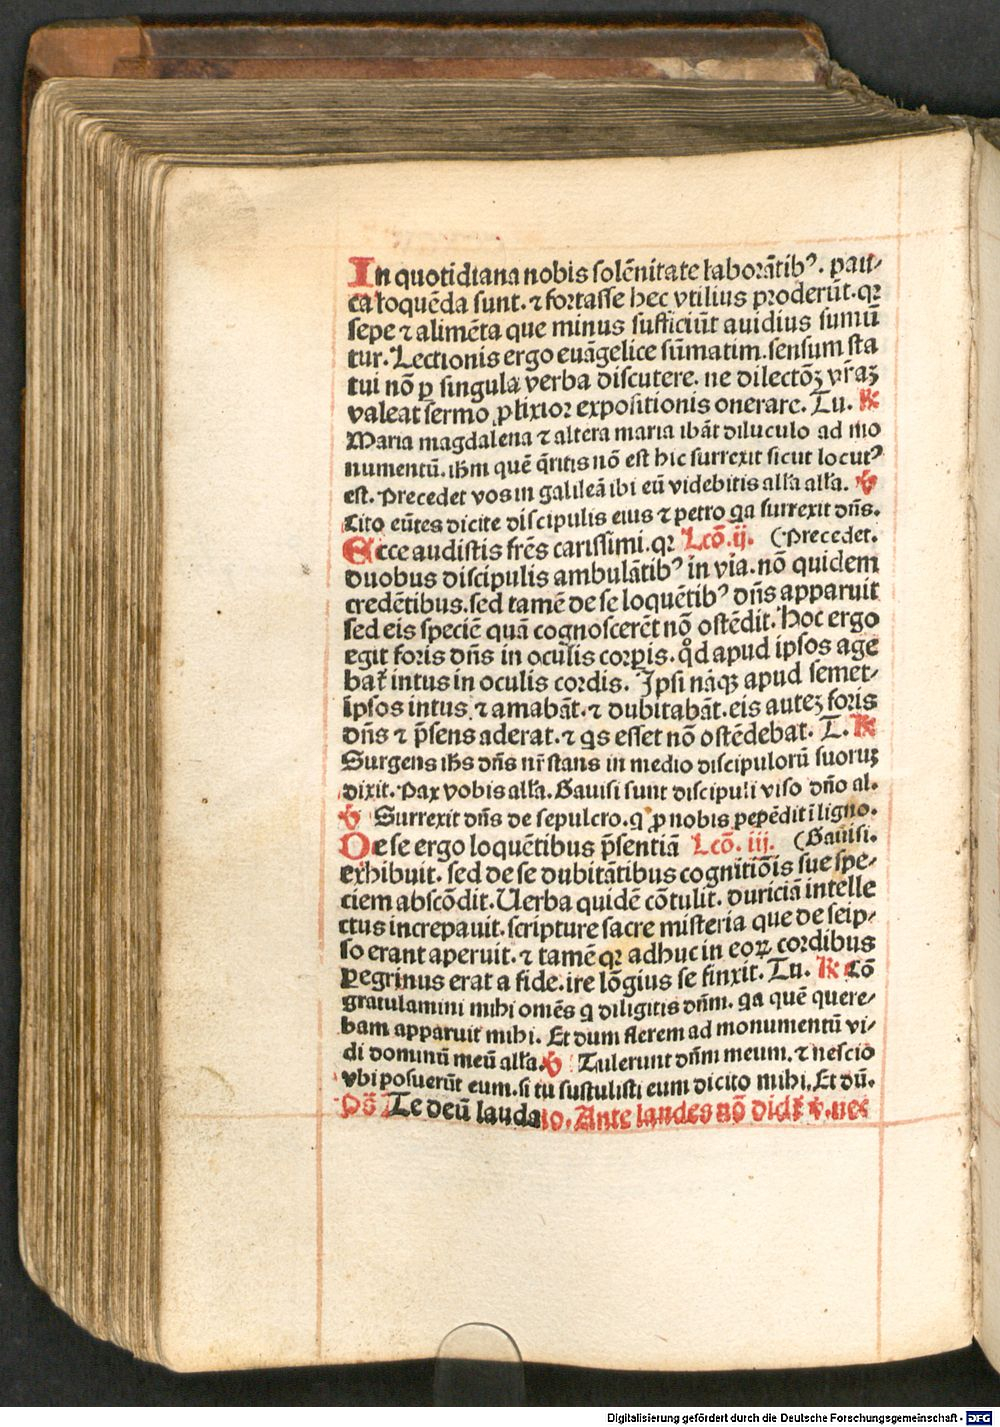 In quotidiana nobis solēnitate laborātibꝰ. pau-
ca loquēda sunt. ⁊ fortasse hec vtilius proderūt. qꝛ
sepe ⁊ alimēta que minus sufficiūt auidius sumū
tur. Lectionis ergo euāgelice sūmatim. sensum sta
tui nō ꝑ singula verba discutere. ne dilectōꝫ vr̄aꝫ
valeat sermo ꝓlixior expositionis onerare. Tu. ℟
Maria magdalena ⁊ altera maria ibāt diluculo ad mo
numentū. ihm quē q̄ritis nō est hic surrexit sicut locutꝰ
est. Precedet vos in galileā ibi eū videbitis alľa alľa. ℣
Cito eūtes dicite discipulis eius ⁊ petro qa surrexit dn̄s.
Ecce audistis frēs carissimi. qꝛ Lcō. ij. (Precedet.
duobus discipulis ambulātibꝰ in via. nō quidem
credētibus. sed tamē de se loquētibꝰ dn̄s apparuit
sed eis speciē quā cognoscerēt nō ostēdit. Hoc ergo
egit foris dn̄s in oculis corꝑis. qd̓ apud ipsos age
bat̄ intus in oculis cordis. Ipsi nāqꝫ apud semet-
ip̄sos intus ⁊ amabāt. ⁊ dubitabāt. eis auteꝫ foris
dn̄s ⁊ p̄sens aderat. ⁊ qs esset nō ostēdebat. T. ℟
Surgens ihs dn̄s nr̄ stans in medio discipulorū suoruꝫ
dixit. Pax vobis alľa. Gauisi sunt discipuli viso dn̄o al.
℣ Surrexit dn̄s de sepulcro. q ꝓ nobis pepēdit ī ligno.
De se ergo loquētibus p̄sentiā Lcō. iij. (Gauisi.
exhibuit. sed de se dubitātibus cognitiōis sue spe-
ciem abscōdit. Uerba quidē cōtulit. duriciā intelle
ctus increpauit. scripture sacre misteria que de seip-
so erant aperuit. ⁊ tamē qꝛ adhuc in eoꝝ cordibus
ꝑegrinus erat a fide. ire lōgius se finxit. Tu. ℟ Cō
gratulamini mihi omēs q diligitis dn̄m. qa quē quere-
bam apparuit mihi. Et dum flerem ad monumentū vi-
di dominū meū alľa. ℣ Tulerunt dn̄m meum. ⁊ nescio
vbi posuerūt eum. si tu sustulisti eum dicito mihi. Et dū.
Ps̄ Te deū lauda io. Ante laudes nō dicit̄ ℣. nec
Digitalisierung gefördert durch die Deutsche Forschungsgemeinschaft - DFG